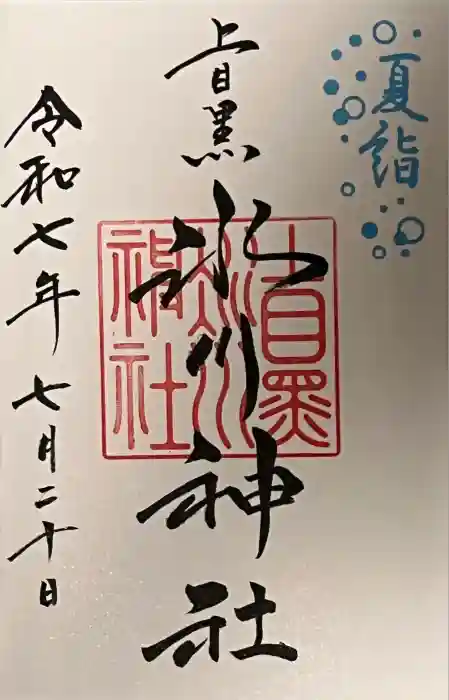 夏詣
上目黒
氷川神社
上目黒
氷川
神社
令和七年 七月二十日